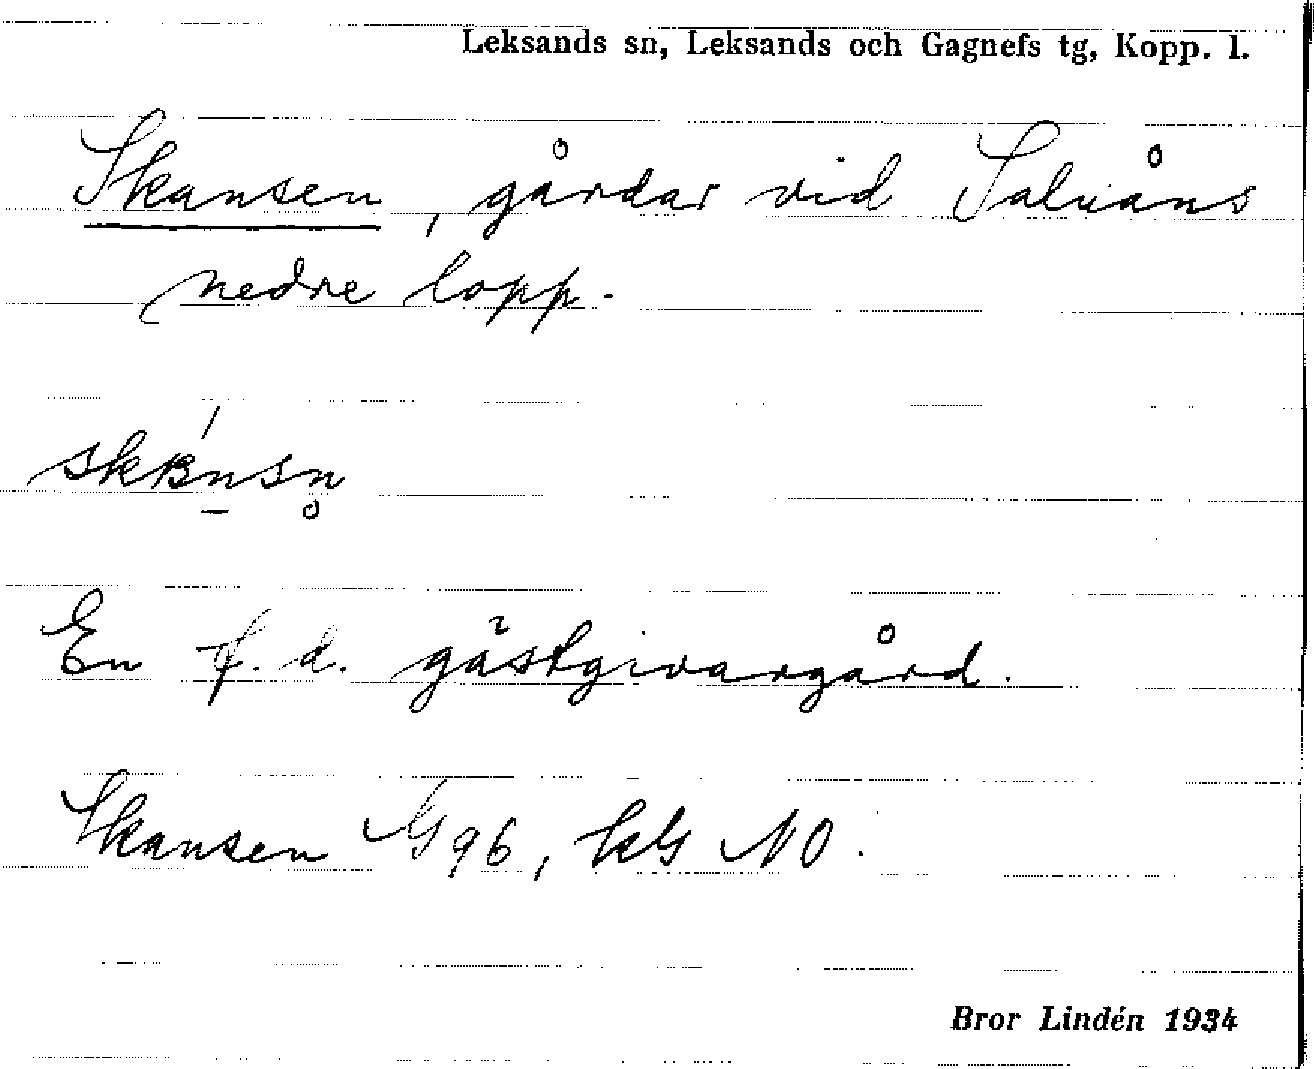 Leksands sn, Leksands och Gagnefs tg, Kopp. l.
Skansen, gårdar vid Saluåns
nedre lopp.
En f. d. gästgivaregård.
Skansen G 96, kG NO.
Bror Lindén 1934